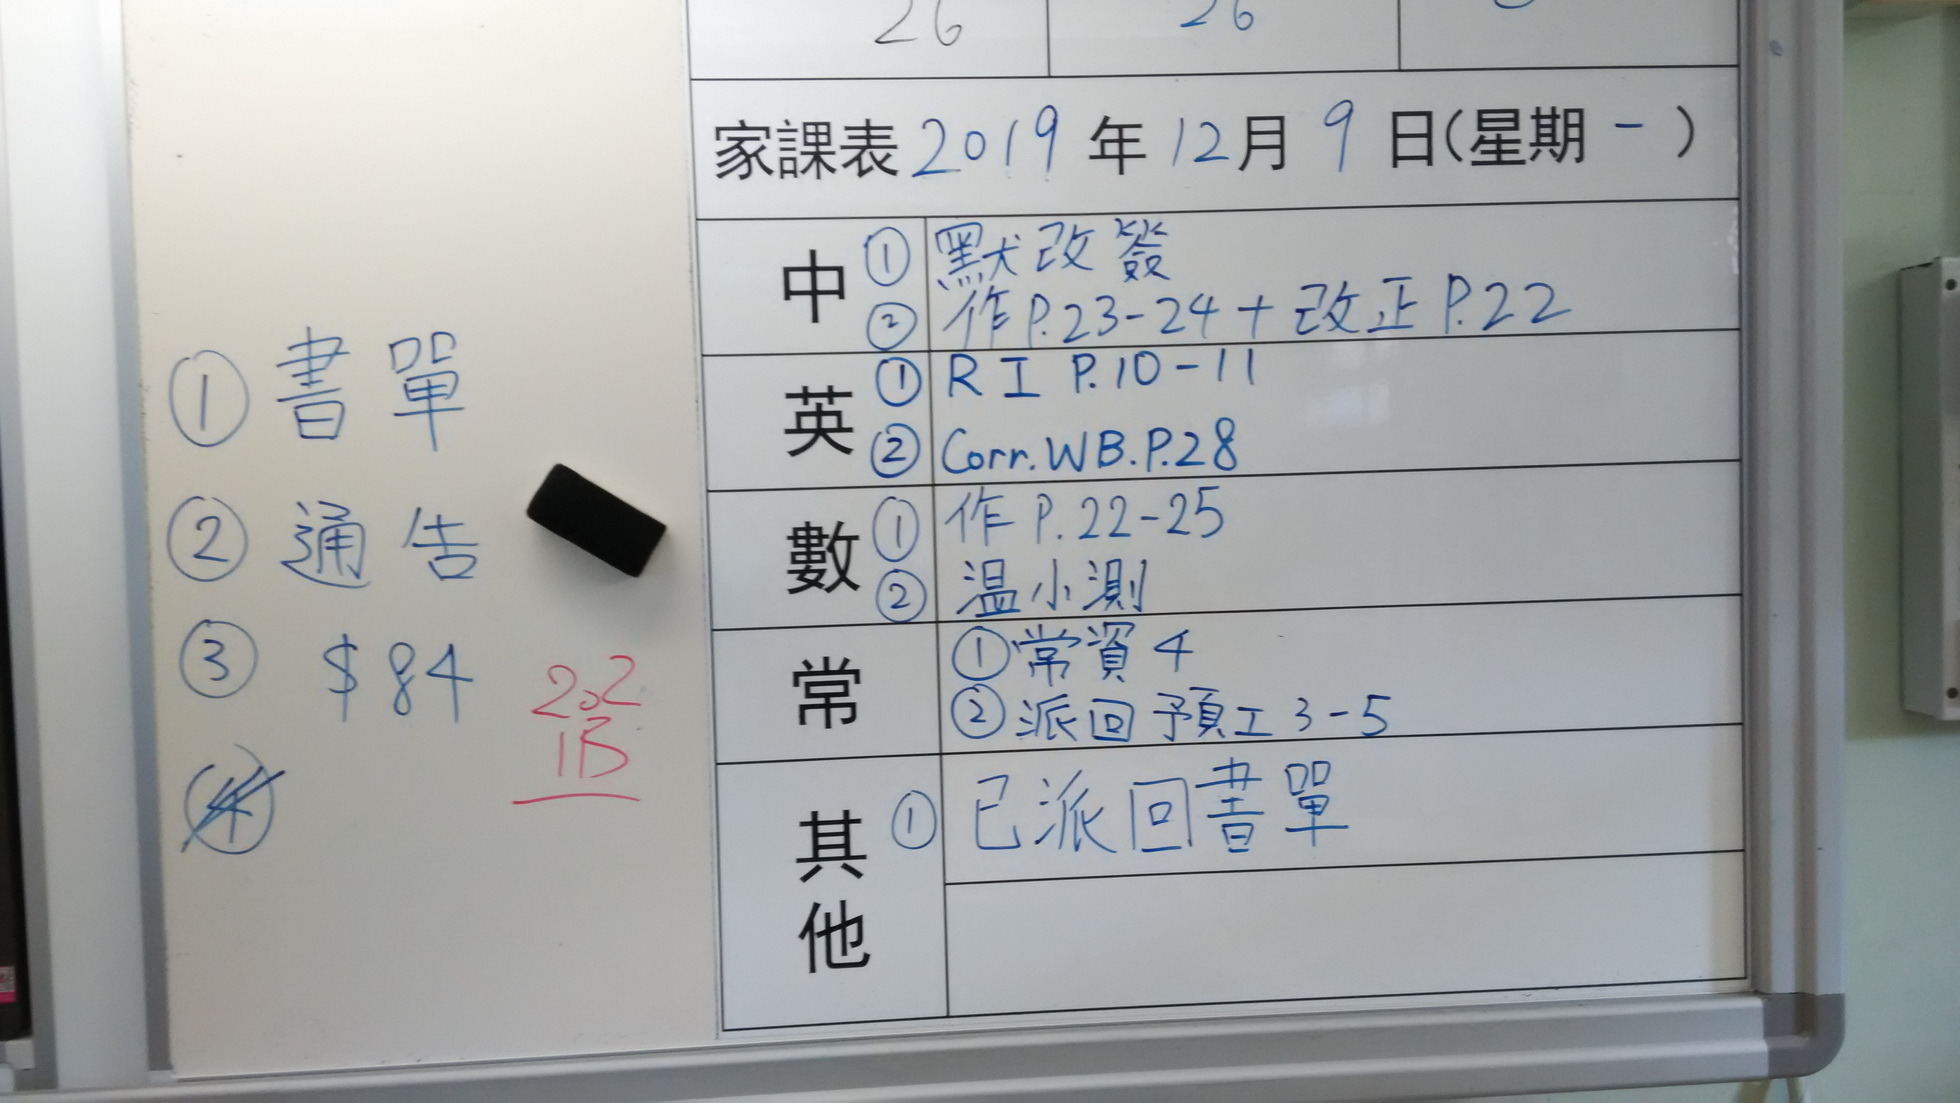 26 26
家課表 2019 年 12 月 9 日(星期 一 )
中 ① 默改簽
② 作 P.23-24 + 改正 P.22
英 ① R I P.10-11
② Corr. WB. P.28
數 ① 作 P.22-25
② 温小測
常 ① 常資 4
② 派回預工 3-5
其他 ① 已派回書單
① 書單
② 通告
③ $84
④
2.2
1B